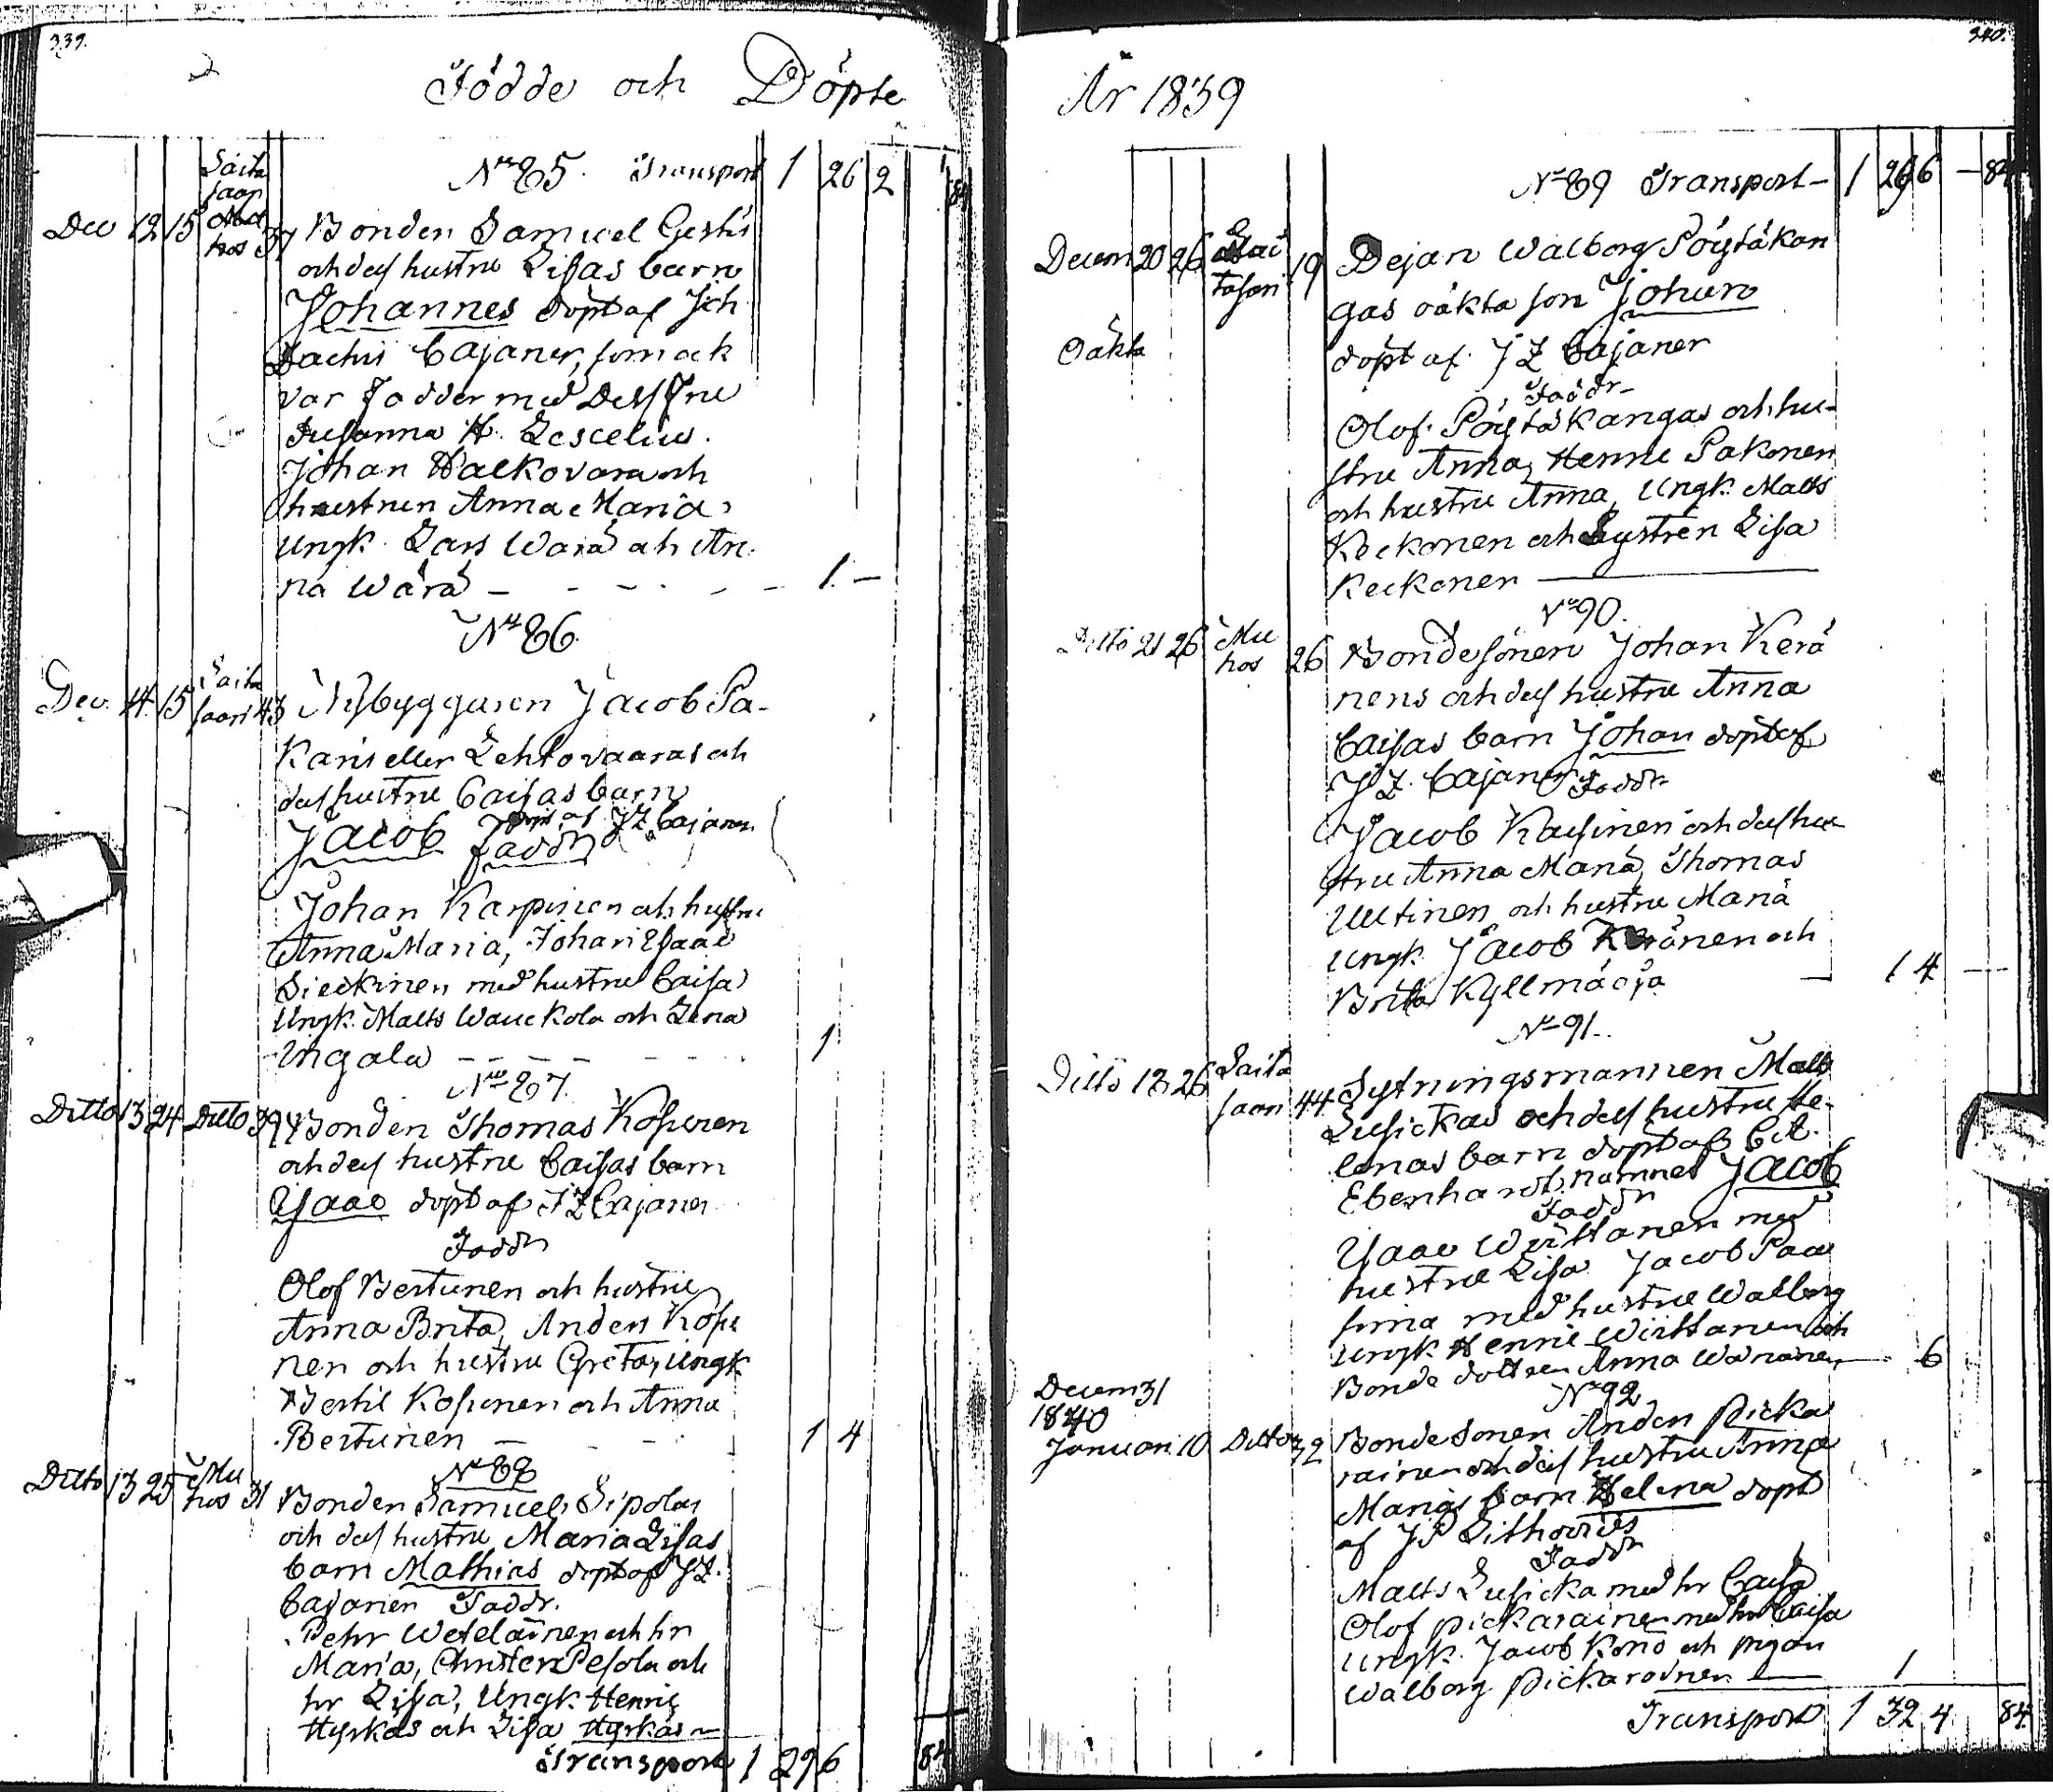 339.
Födde och Döpte
No 85. Transport 1 26 2 84
Dec 12 15 Säita saari Mu hos 37 Bonden Samuel
och dess hustru Lisas barn
Johannes döpt af Joh
Zachris Cajaner, som ock
var Fadder med Dess Fru
Susanna H. Zescelius.
Johan Walkovara och
hustrun Anna Maria
Ungk. Lars Wärä och An-
na Wärä - - - - - 1 -
No 86.
Dec. 14 15 Säita saari 43 Nybyggaren Jacob Pa-
karis eller Lehtovaaras och
dess hustru Caisas barn
Jacob döpt af JZ Cajaner
Faddr
Johan Karpinen och hustru
Anna Maria, Johan Isaac
Sieckinen med hustru Caisa
Ungk. Matts Wauckola och Lena
Ingala - - - - 1
No 87.
Ditto 13 24 Ditto 39 Bonden Thomas Kosunen
och dess hustru Caisas barn
Isaac döpt af JZ Cajaner
Faddr
Olof Bertunen och hustru
Anna Brita, Anders Kosu
nen och hustru Greta, Ungk
Bertil Kosunen och Anna
Bertunen - - - 1 4
No 88
Ditto 13 25 Mu hos 31 Bonden Samuel Sipolas
och dess hustru Maria Lisas
barn Mathias döpt af JZ.
Cajaner Faddr.
Pehr Weteläinen och hr
Maria, Christer Pesola och
hr Lisa, Ungk. Henric
Hyrkäs och Lisa Hyrkäs
Transport 1 29 6 84
340.
År 1839
No 89 Transport - 1 29 6 - 84
Decem 20 26 Säi tasari 19 Pejan Walborg Pöytäkan
gas oäkta son Johan
Oäkta döpt af JZ Cajaner
Faddr
Olof Pöytäkangas och hu-
stru Anna, Henric Pakonen
och hustru Anna, Ungk. Matts
Keckonen och Systren Lisa
Keckonen
No 90.
Ditto 21 26 Mu hos 26 Bondesonen Johan Kerä
nens och dess hustru Anna
Caisas barn Johan döpt af
JZ. Cajaner Faddr
Jacob Kausinen och dess hu
stru Anna Maria, Thomas
Uutinen och hustru Maria
Ungk. Jacob Keränen och
Brita Kyllmäoja - 1 4 -
No 91.
Ditto 18 26 Saita saari 44 Sytningsmannen Matts
Lusickas och dess hustru He-
lenas barn döpt af C.A.
Ebenhardt, namnet Jacob
Faddr
Isaac Wirttanen med
hustru Lisa Jacob Paa
sima med hustru Walborg
Ungk Henric Wirttanen och
Bonde dottren Anna Wananen 6
No 92
Decem 31
1840
Januari 10 Ditto 32 Bonde Sonen Anders Picka
rainen och dess hustru Anna
Marias barn Helena döpt
af JP Lithovius
Faddr
Matts Lusicka med hr Caisa
Olof Pickarainen med hr Caisa
Ungk. Jacob Konö och pigan
Walborg Pickarainen 1
Transport 1 32 4 84